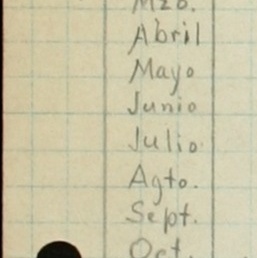 Mzo.
Abril
Mayo
Junio
Julio
Agto.
Sept.
Oct.